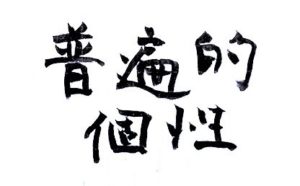 普遍的
個性